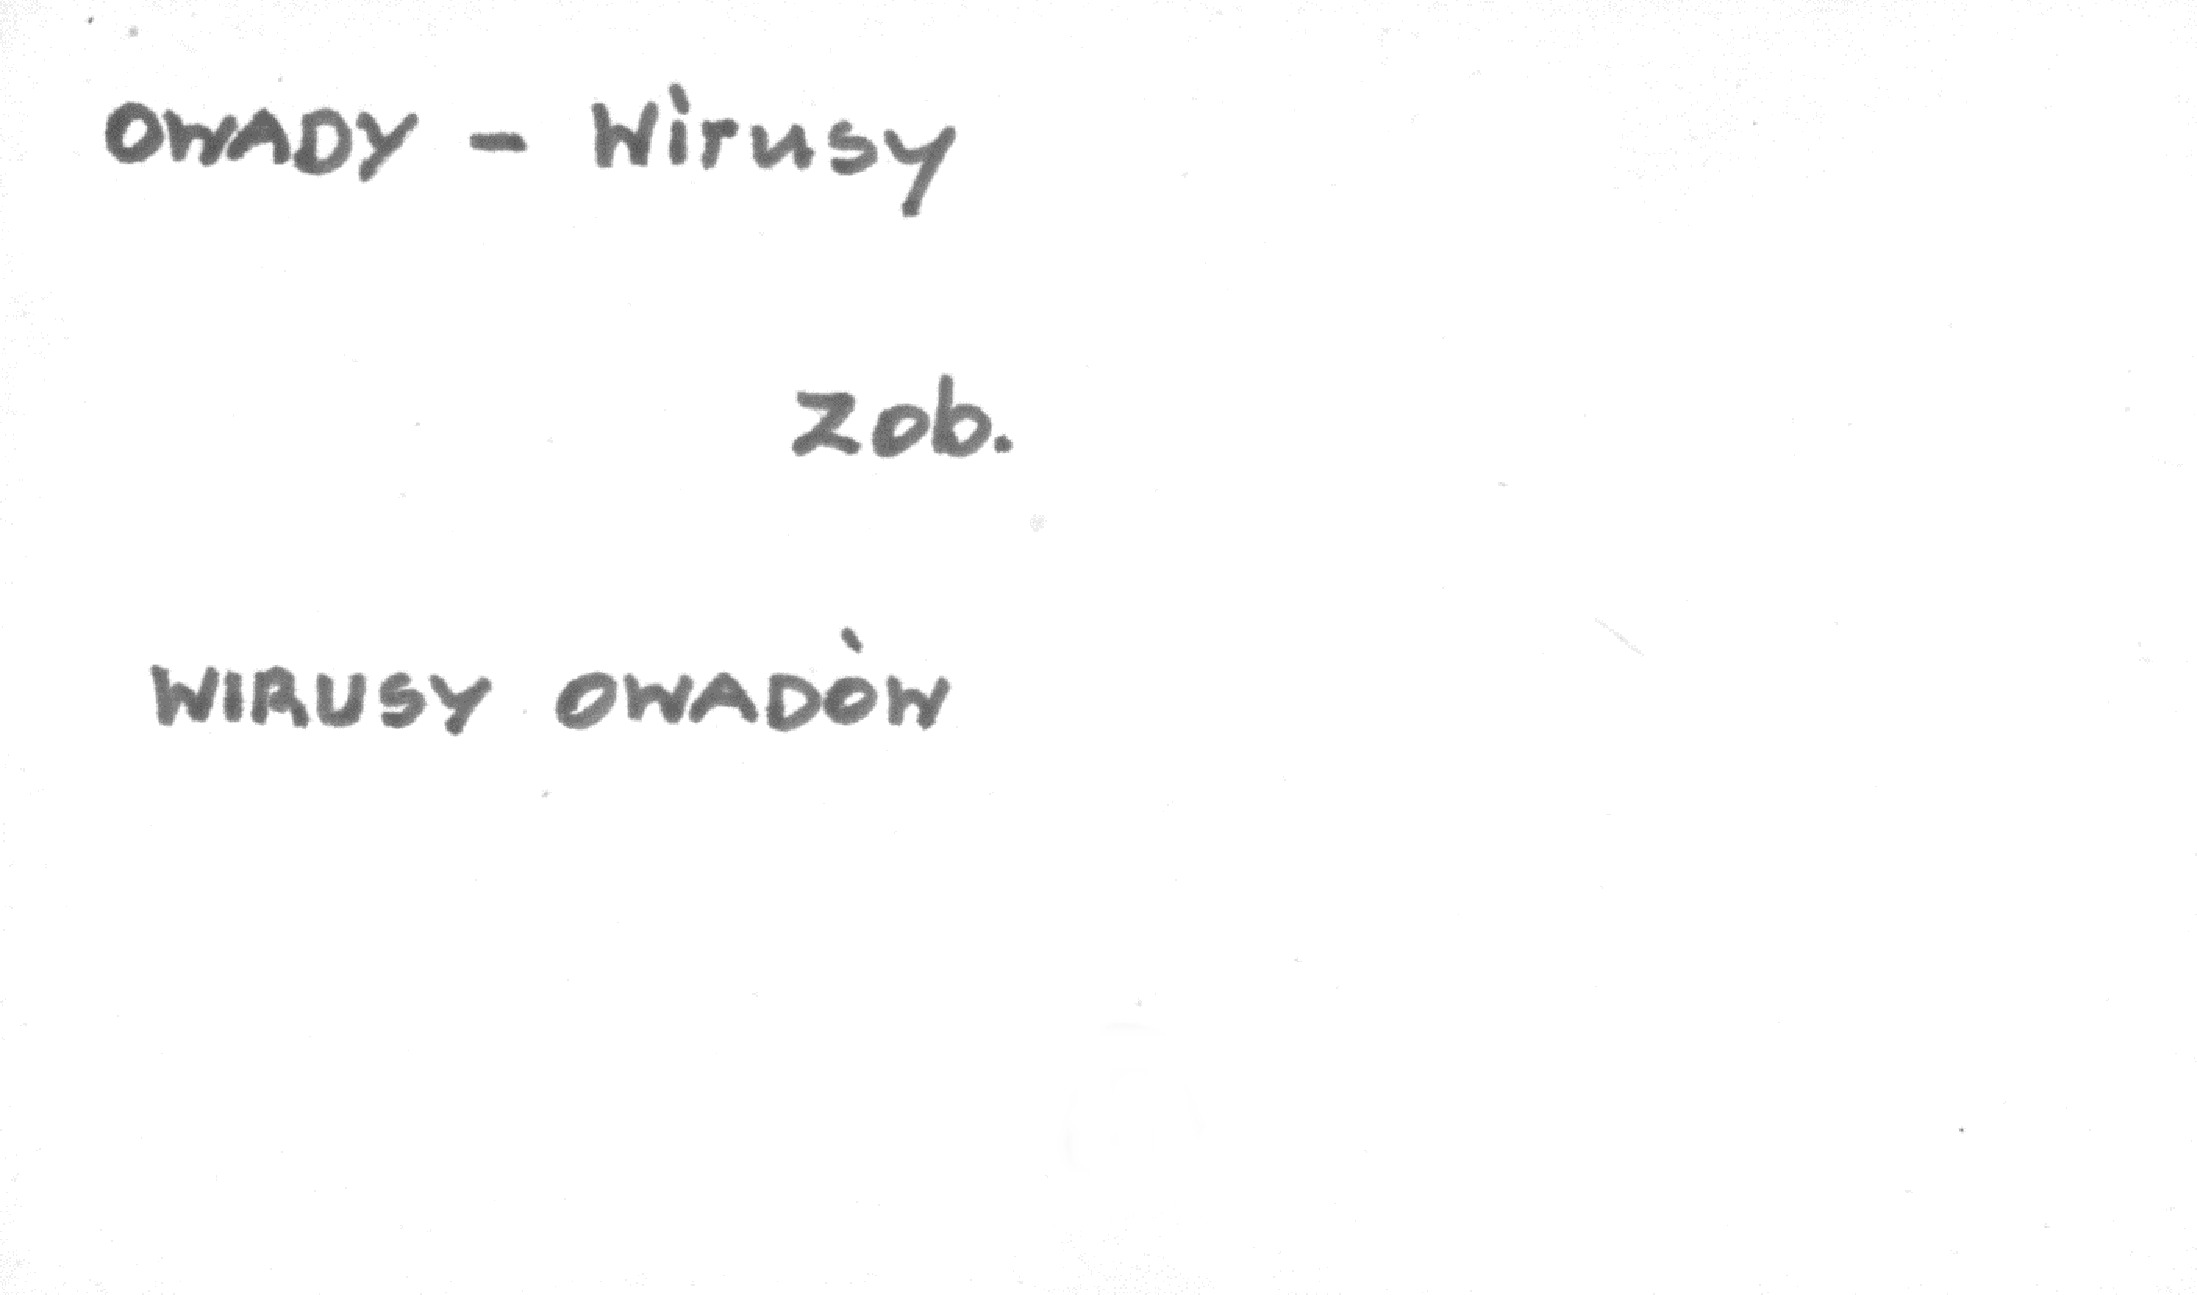 OWADY - Wirusy
zob.
WIRUSY OWADÓW